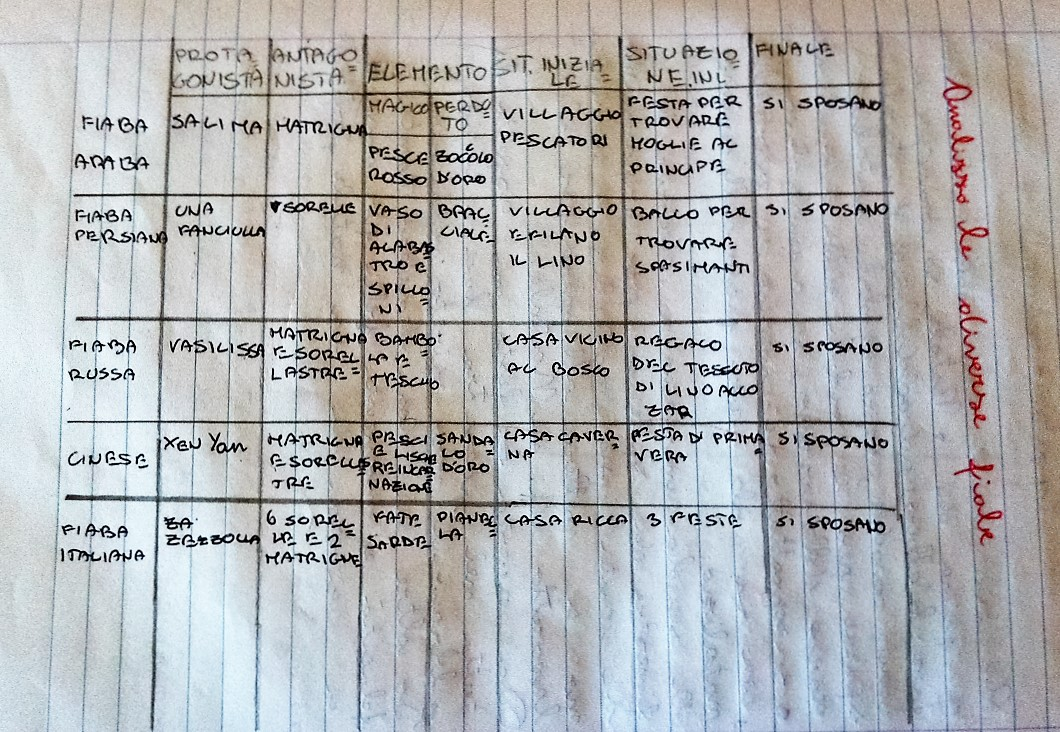 PROTA= ANTAGO= ELEMENTO SIT. INIZIA SITUAZIO= FINALE
GONISTA NISTA LE = NE.INI
FIABA ARABA SALIMA MATRIGNA
MAGICO PERDU TO
PESCE ROSSO ZOCOLO D'ORO
VILLAGGIO PESCATORI
FESTA PER
TROVARE
MOGLIE AL
PRINCIPE
SI SPOSANO
FIABA PERSIANA
UNA FANCIULLA
SORELLE
VASO
DI
ALABAS
TRO E
SPILLO=
NI
BRAC=
CIALE
VILLAGGIO
E FILANO
IL LINO
BALLO PER
TROVARE
SPASIMANTI
SI SPOSANO
FIABA
RUSSA
VASILISSA
MATRIGNA
E SOREL
LASTRE=
BAMBO=
LA E
TESCHIO
CASA VICINO
AL BOSCO
REGALO
DEL TESSUTO
DI LINO ALLO
ZAR
SI SPOSANO
CINESE
XEN Yan
MATRIGNA
E SORELLAS
TRE
PESCI
E LISCHE
REINCAR
NAZIONE
SANDA=
LO
D'ORO
CASA CAVER=
NA
FESTA DI PRIMA=
VERA
SI SPOSANO
FIABA
ITALIANA
ZA
ZEZZOLLA
6 SOREL=
LE E 2
MATRIGNE
FATE
SARDE
PIANEL=
LA
CASA RICCA
3 FESTE
SI SPOSANO
Analisi di diverse fiabe